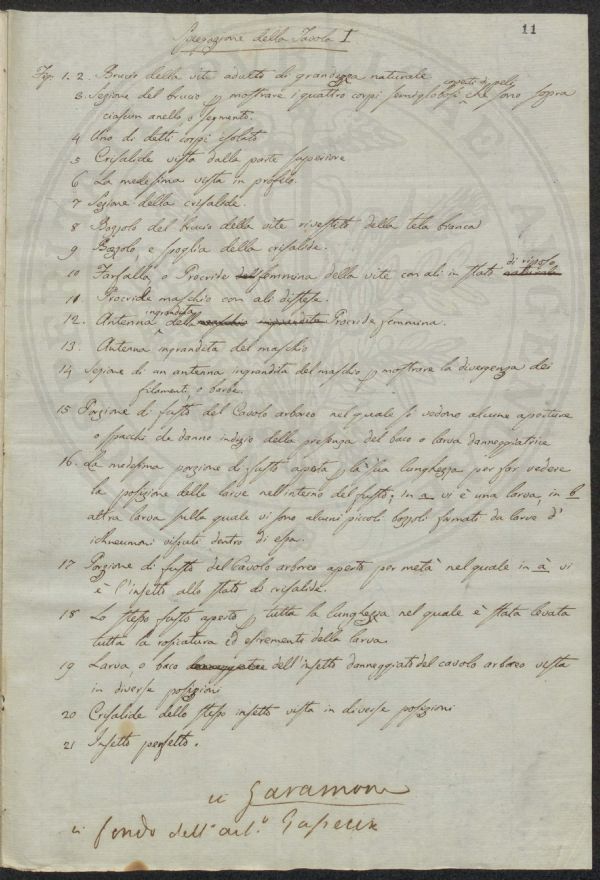 11
Spiegazione della Tavola I
Fig. 1. 2. Bruco della vite adulto di grandezza naturale
3. Sezione del bruco p mostrare i quattro corpi semiglobosi coperti di peli che sono sopra
ciascun anello o segmento.
4 Uno di detti corpi isolato
5 Crisalide vista dalla parte superiore
6 La medesima vista in profilo.
7 Sezione della crisalide.
8 Bozzolo del bruco della vite rivestito della tela bianca
9 Bozzolo, e spoglia della crisalide.
10 Farfalla, o Procride femmina della vite con ali in stato naturale di riposo
11 Procride maschio con ali distese.
12. Antenna ingrandita della maschio ingrandita Procride femmina.
13. Antenna ingrandita del maschio
14 Sezione di un antenna ingrandita del maschio p mostrare la divergenza dei
filamenti, o barbe.
15 Porzione di fusto del Cavolo arboreo nel quale si vedono alcune aperture
o spacchi che danno indizio della presenza del baco o larva danneggiatrice
16. La medesima porzione di fusto aperta p la sua lunghezza per far vedere
la posizione delle larve nell'interno del fusto; in a vi è una larva, in b
altra larva sulla quale vi sono alcuni piccoli bozzoli formati da larve d'
ichneumoni vissuti dentro di essa.
17 Porzione di fusto del Cavolo arboreo aperto per metà nel quale in a vi
è l'insetto allo stato di crisalide.
18 Lo stesso fusto aperto p tutta la lunghezza nel quale è stata levata
tutta la rosicatura ed escrementi della larva.
19 Larva, o baco dell'insetto danneggiato del cavolo arboreo vista
in diverse posizioni
20 Crisalide dello stesso insetto vista in diverse posizioni
21 Insetto perfetto.
in Garamone
in fondo dell'art.º